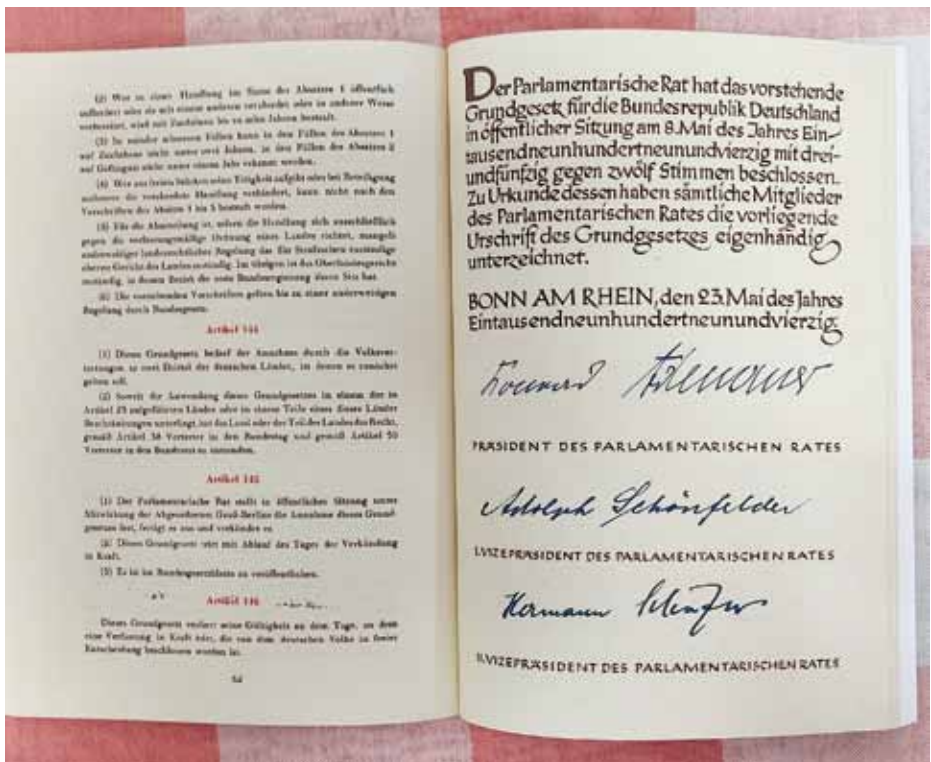 (2) Wer zu einer Handlung im Sinne des Absatzes 1 öffentlich
auffordert oder sie mit einem anderen verabredet oder in anderer Weise
vorbereitet, wird mit Zuchthaus bis zu zehn Jahren bestraft.
(3) In minder schweren Fällen kann in den Fällen des Absatzes 1
auf Zuchthaus nicht unter zwei Jahren, in den Fällen des Absatzes 2
auf Gefängnis nicht unter einem Jahr erkannt werden.
(4) Wer aus freien Stücken seine Tätigkeit aufgibt oder bei Beteiligung
mehrerer die verabredete Handlung verhindert, kann nicht nach den
Vorschriften der Absätze 1 bis 3 bestraft werden.
(5) Für die Aburteilung ist, sofern die Handlung sich ausschließlich
gegen die verfassungsmäßige Ordnung eines Landes richtet, mangels
anderweitiger landesrechtlicher Regelung das für Strafsachen zuständige
oberste Gericht des Landes zuständig. Im übrigen ist das Oberlandesgericht
zuständig, in dessen Bezirk die erste Bundesregierung ihren Sitz hat.
(6) Die vorstehenden Vorschriften gelten bis zu einer anderweitigen
Regelung durch Bundesgesetz.
Artikel 144
(1) Dieses Grundgesetz bedarf der Annahme durch die Volksver-
tretungen in zwei Dritteln der deutschen Länder, in denen es zunächst
gelten soll.
(2) Soweit die Anwendung dieses Grundgesetzes in einem der in
Artikel 23 aufgeführten Länder oder in einem Teile eines dieser Länder
Beschränkungen unterliegt, hat das Land oder der Teil des Landes das Recht,
gemäß Artikel 38 Vertreter in den Bundestag und gemäß Artikel 50
Vertreter in den Bundesrat zu entsenden.
Artikel 145
(1) Der Parlamentarische Rat stellt in öffentlicher Sitzung unter
Mitwirkung der Abgeordneten Groß-Berlins die Annahme dieses Grund-
gesetzes fest, fertigt es aus und verkündet es.
(2) Dieses Grundgesetz tritt mit Ablauf des Tages der Verkündung
in Kraft.
(3) Es ist im Bundesgesetzblatte zu veröffentlichen.
Artikel 146
Dieses Grundgesetz verliert seine Gültigkeit an dem Tage, an dem
eine Verfassung in Kraft tritt, die von dem deutschen Volke in freier
Entscheidung beschlossen worden ist.
Der Parlamentarische Rat hat das vorstehende
Grundgesetz für die Bundesrepublik Deutschland
in öffentlicher Sitzung am 8. Mai des Jahres Ein-
tausendneunhundertneunundvierzig mit drei-
undfünfzig gegen zwölf Stimmen beschlossen.
Zu Urkunde dessen haben sämtliche Mitglieder
des Parlamentarischen Rates die vorliegende
Urschrift des Grundgesetzes eigenhändig
unterzeichnet.
BONN AM RHEIN, den 23. Mai des Jahres
Eintausendneunhundertneunundvierzig:
Konrad Adenauer
PRÄSIDENT DES PARLAMENTARISCHEN RATES
Adolph Schönfelder
I. VIZEPRÄSIDENT DES PARLAMENTARISCHEN RATES
Hermann Schäfer
II. VIZEPRÄSIDENT DES PARLAMENTARISCHEN RATES